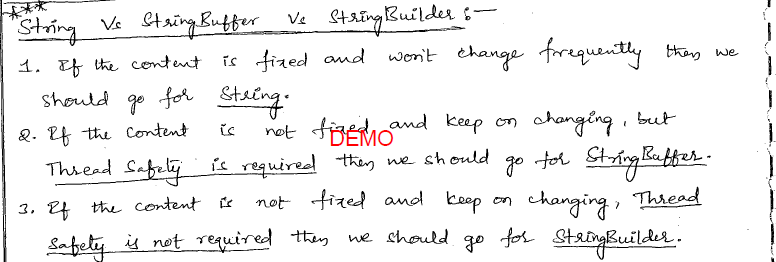 *** String Vs StringBuffer Vs StringBuilder :-
1. If the content is fixed and won't change frequently then we
should go for String.
2. If the content is not fixed and keep on changing, but
DEMO
Thread Safety is required then we should go for StringBuffer.
3. If the content is not fixed and keep on changing, Thread
Safety is not required then we should go for StringBuilder.